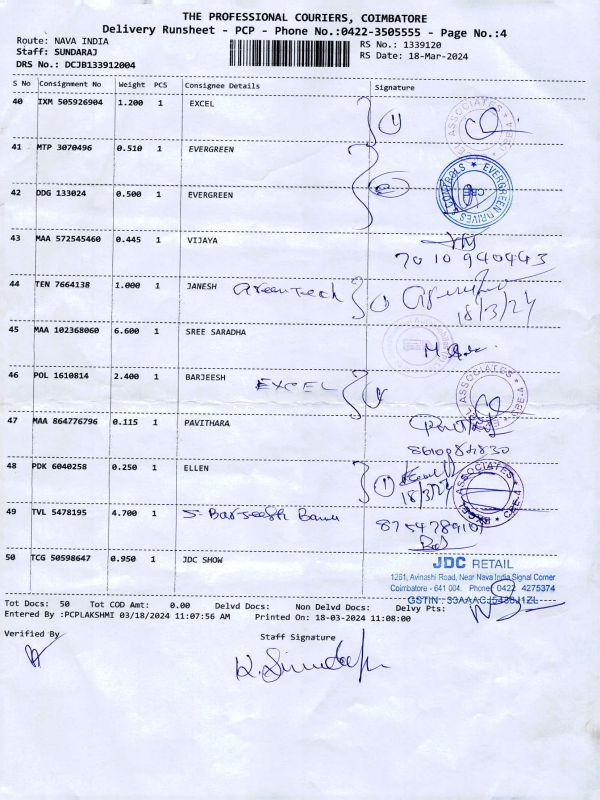 THE PROFESSIONAL COURIERS, COIMBATORE
Delivery Runsheet - PCP - Phone No.:0422-3505555 - Page No.:4
Route: NAVA INDIA
RS No.: 1339120
Staff: SUNDARAJ
RS Date: 18-Mar-2024
DRS No.: DCJB133912004
S No Consignment No Weight PCS Consignee Details Signature
40 IXM 505926904 1.200 1 EXCEL
41 MTP 3070496 0.510 1 EVERGREEN
42 DDG 133024 0.500 1 EVERGREEN
EVERGREEN DRIVES & CONTROLS ★ CBE
43 MAA 572545460 0.445 1 VIJAYA
7010940443
44 TEN 7664138 1.000 1 JANESH Greentech
18/3/24
45 MAA 102368060 6.600 1 SREE SARADHA
46 POL 1610814 2.400 1 BARJEESH EXCEL
EXCEL ASSOCIATES ★ CBE-4
47 MAA 864776796 0.115 1 PAVITHARA
48 PDK 6040258 0.250 1 ELLEN
18/3/24
EXCEL ASSOCIATES ★ CBE-4
49 TVL 5478195 4.700 1 S. Barjeesh Banu
50 TCG 50598647 0.950 1 JDC SHOW
JDC RETAIL
1261, Avinashi Road, Near Nava India Signal Corner
Coimbatore - 641 004. Phone: 0422 4275374
GSTIN :
Tot Docs: 50 Tot COD Amt: 0.00 Delvd Docs: Non Delvd Docs: Delvy Pts:
Entered By :PCPLAKSHMI 03/18/2024 11:07:56 AM Printed On: 18-03-2024 11:08:00
Verified By
Staff Signature